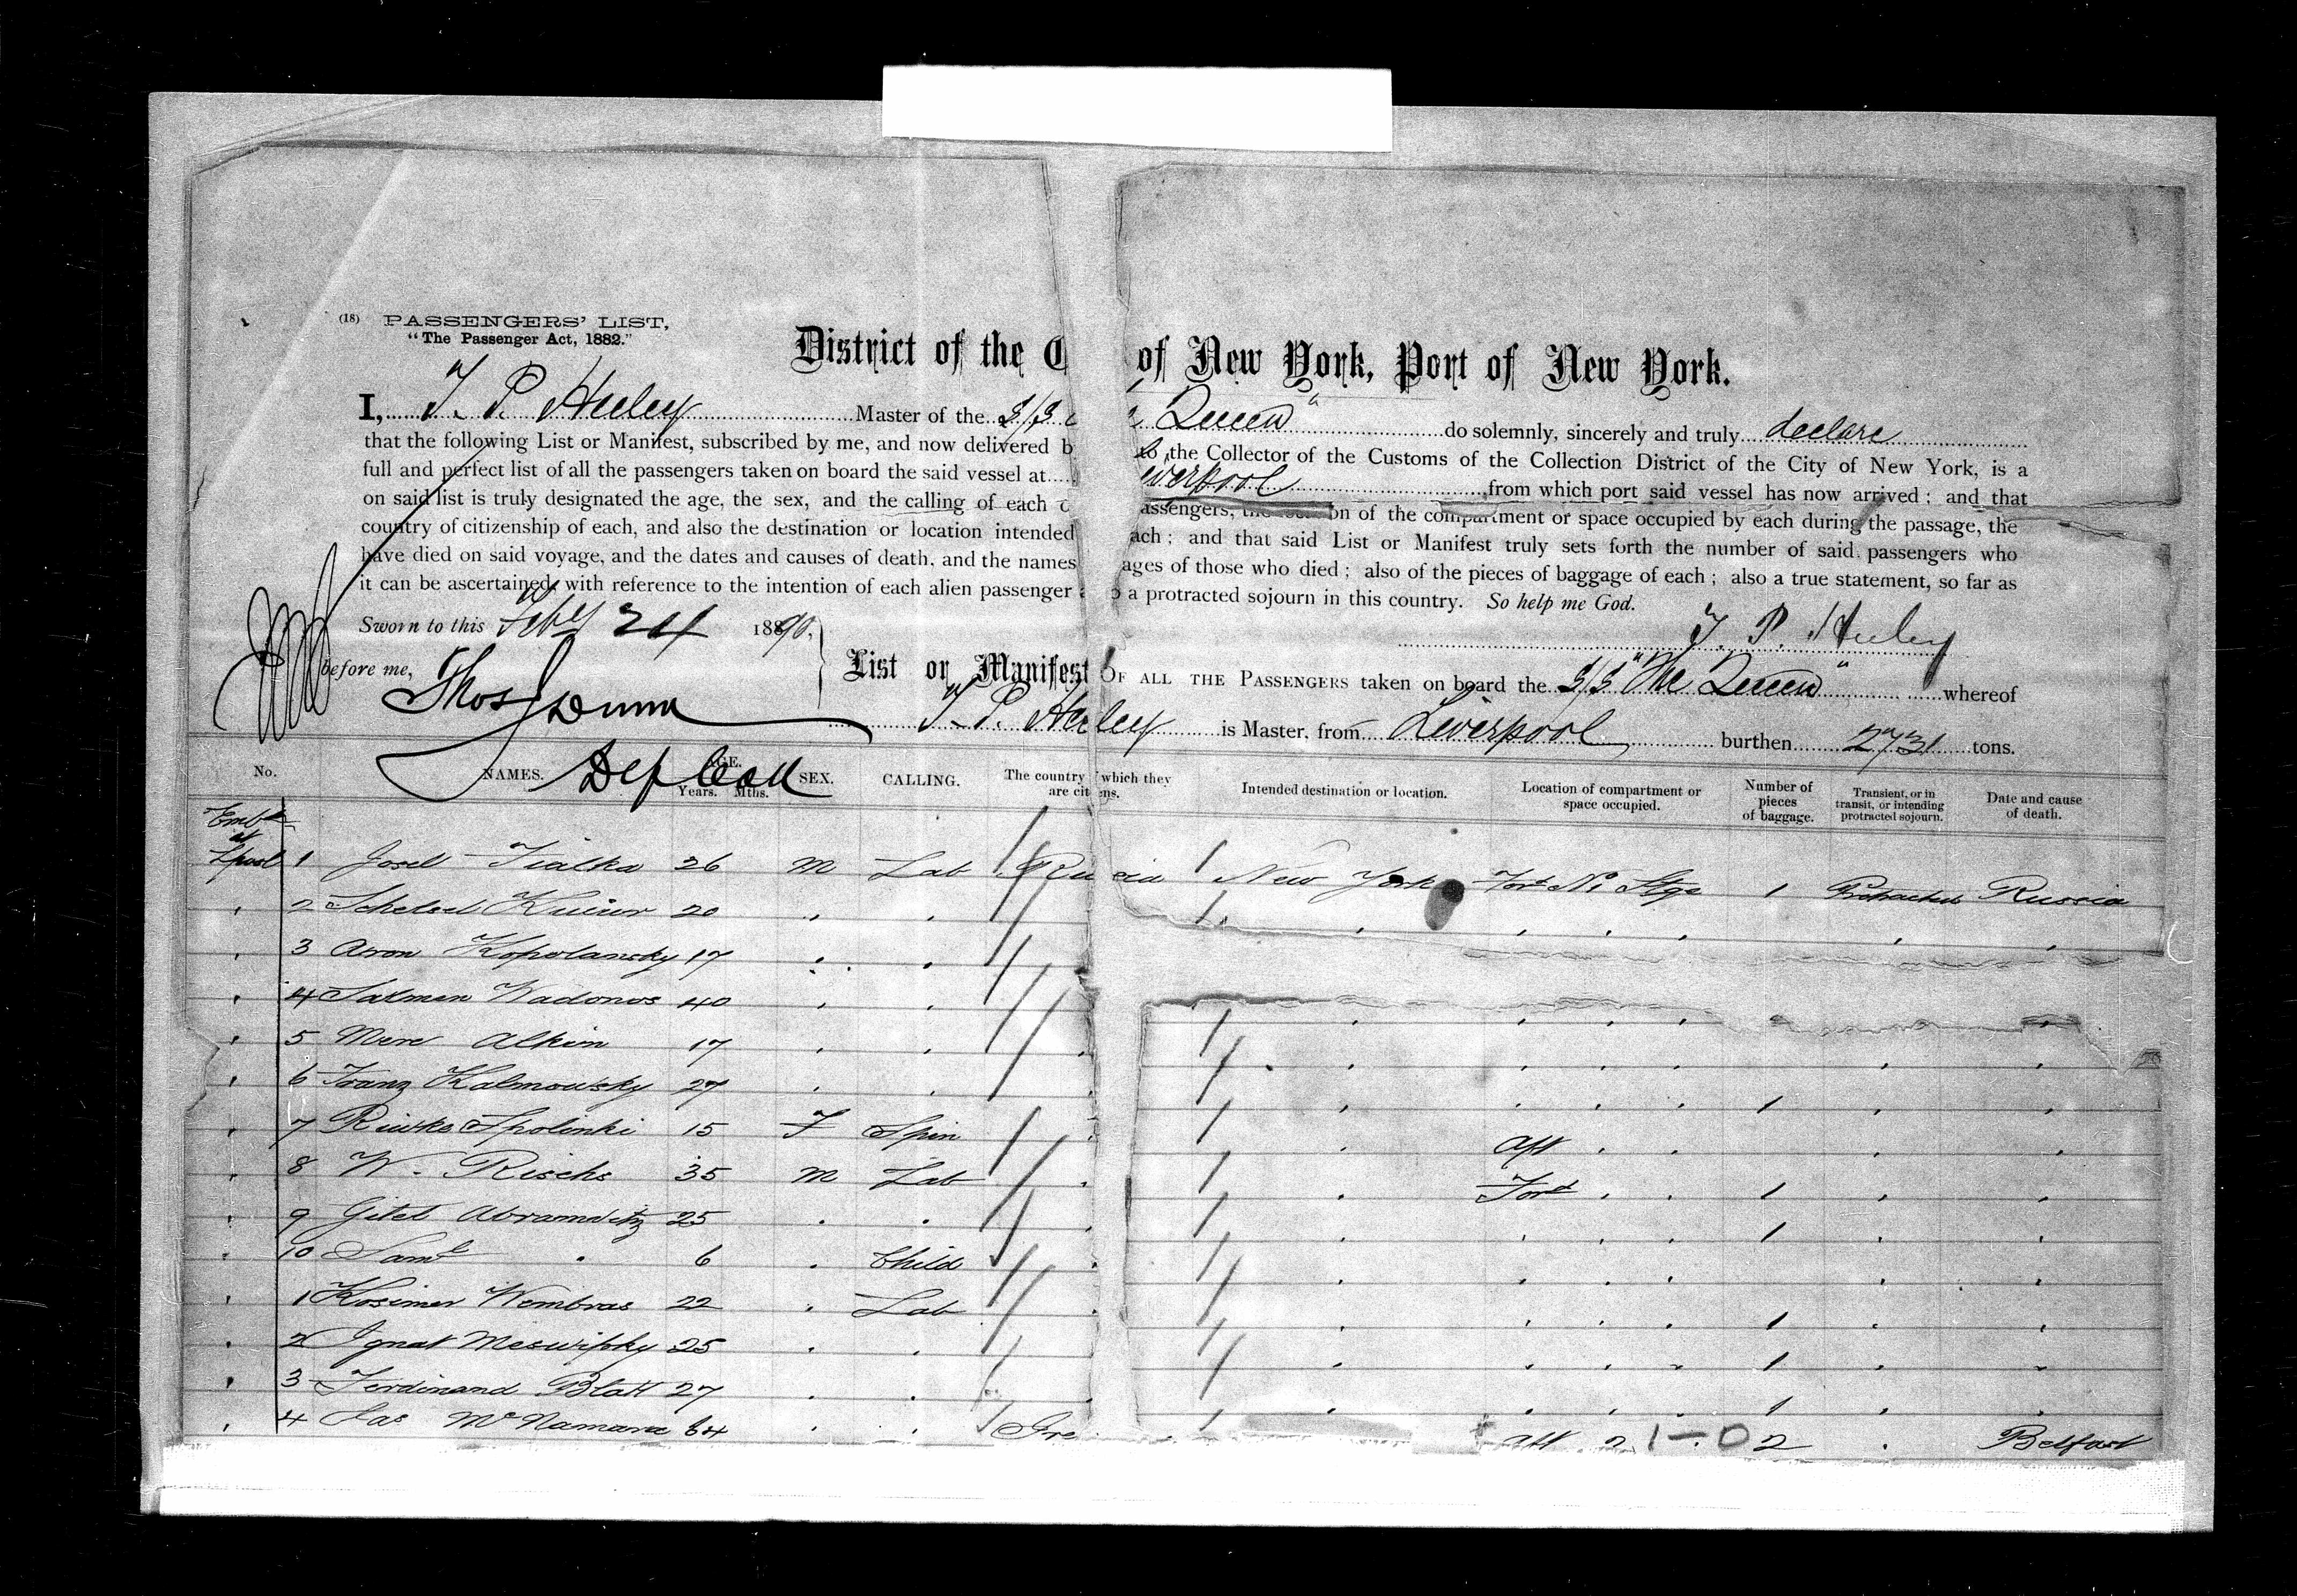 (18) PASSENGERS' LIST,
"The Passenger Act, 1882."
District of the C of New York, Port of New York.
I, T. P. Heeley Master of the S/S Queen" do solemnly, sincerely and truly declare
that the following List or Manifest, subscribed by me, and now delivered b to the Collector of the Customs of the Collection District of the City of New York, is a
full and perfect list of all the passengers taken on board the said vessel at iverpool from which port said vessel has now arrived; and that
on said list is truly designated the age, the sex, and the calling of each assengers, the on of the compartment or space occupied by each during the passage, the
country of citizenship of each, and also the destination or location intended ach; and that said List or Manifest truly sets forth the number of said passengers who
have died on said voyage, and the dates and causes of death, and the names ages of those who died; also of the pieces of baggage of each; also a true statement, so far as
it can be ascertained, with reference to the intention of each alien passenger a protracted sojourn in this country. So help me God.
Sworn to this Feby 24 1890, T. P. Heeley
before me, Thos Dunn List or Manifest OF ALL THE PASSENGERS taken on board the S/S "The Queen" whereof
T. P. Heeley is Master, from Liverpool burthen 2731 tons.
Dep Coll
No. NAMES. AGE. Years. Mths. SEX. CALLING. The country which they are cit ens. Intended destination or location. Location of compartment or space occupied. Number of pieces of baggage. Transient, or in transit, or intending protracted sojourn. Date and cause of death.
Embd at
Lpool 1 Josel Fialka 26 M Lab Ru cia New York Ford No 1 Stge 1 Protracted Russia
2 20
3 Aron Kopolansky 17
4 Salmen Wadonos 40
5 Mere Alkim 17
6 Franz Kalmowsky 27 1
7 Riwke Spolinki 15 F Spin Aft
8 W. Rischs 35 M Lab Ford 1
9 Gitel Abramowitz 25 1
10 Saml " 6 Child
1 Kosimer Wembras 22 Lab 1
2 Ignat 25 1
3 Ferdinand Blatt 27 1
4 Jas McNamara 64 Ire Aft 2 1-0 2 Belfast